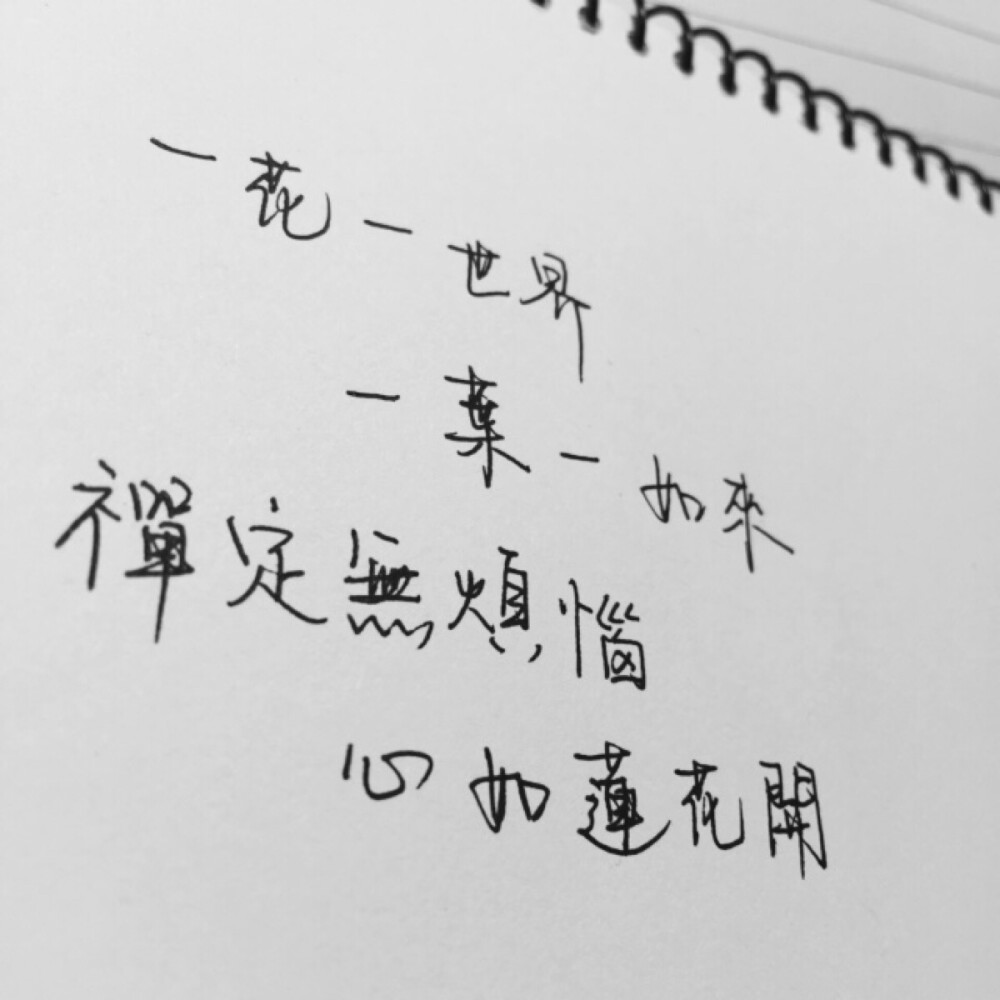 一花一世界
一葉一如來
禪定無煩惱
心如蓮花開